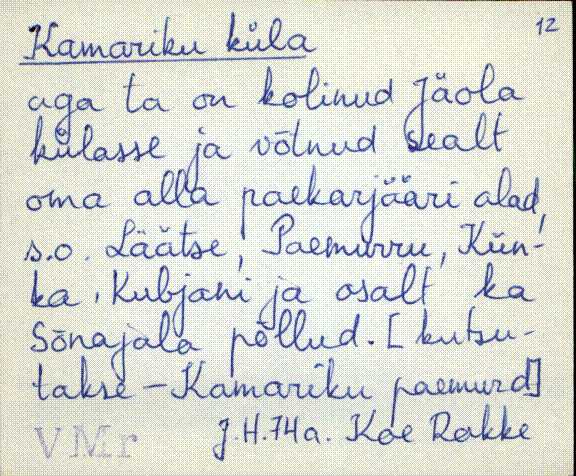 12
Kamariku küla
aga ta on kolinud Jäola
külasse ja võtnud sealt
oma alla paekarjääri alad,
s.o. Läätse, Paemurru, Kün-
ka, Kubjani ja osalt ka
Sõnajala põllud. [kutsu-
takse – Kamariku paemurd]
VMr J.H. 74a. Koe Rakke